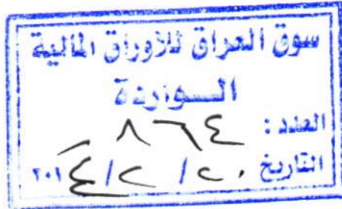 سوق العراق للأوراق المالية
الـواردة
العدد : ٨٦٤
التاريخ ٢٠ / ٢ / ٢٠١٤